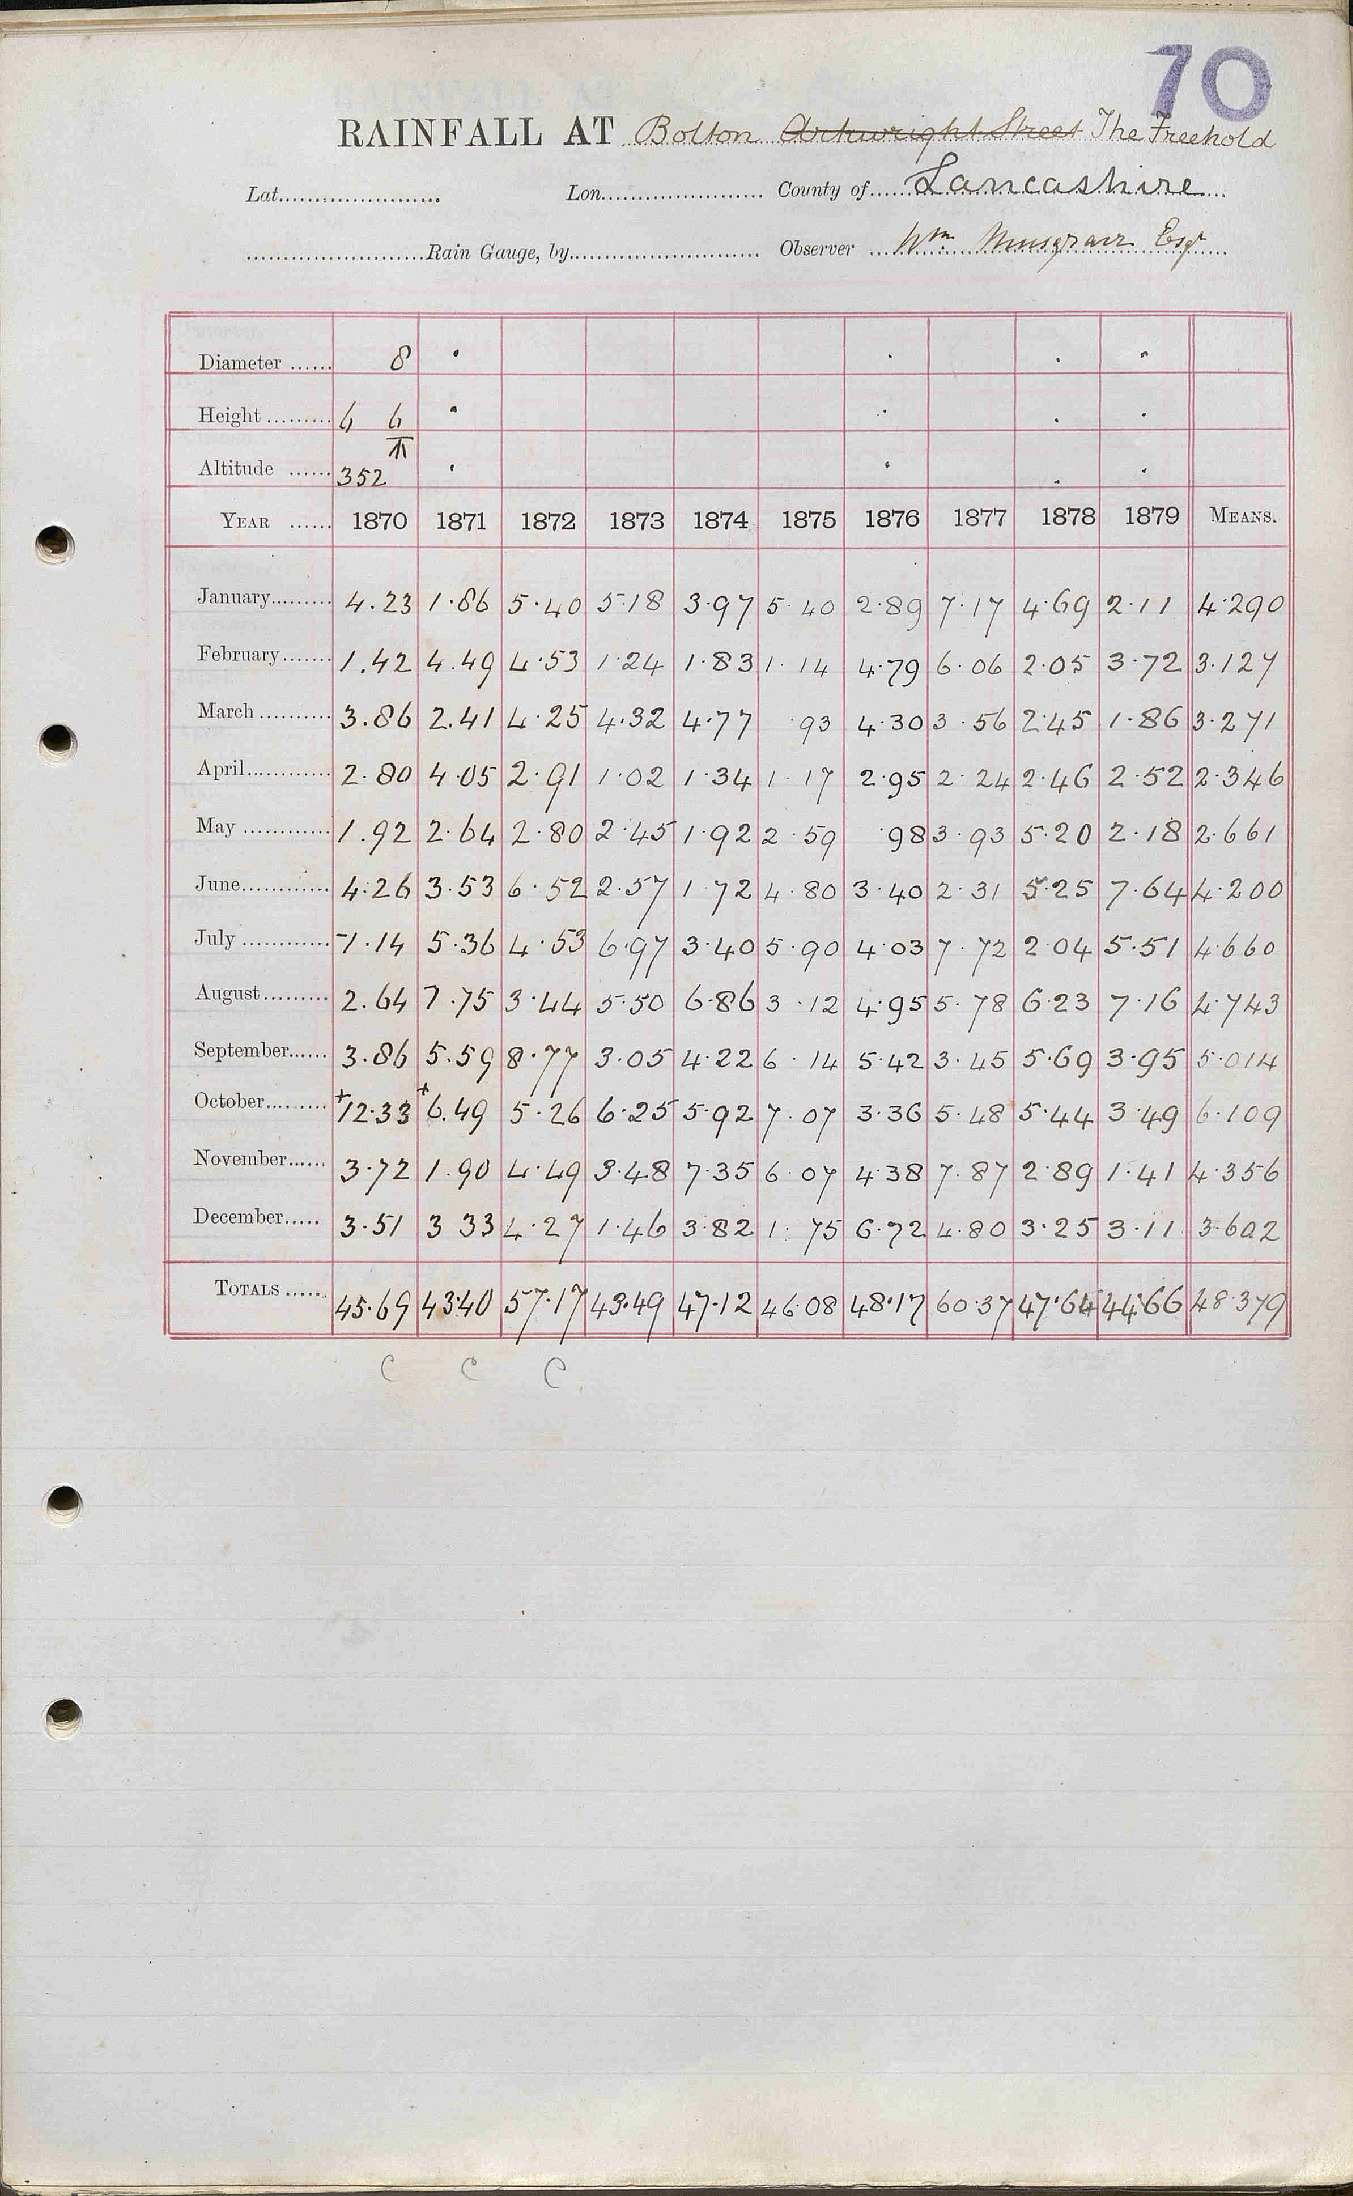 70
RAINFALL AT Bolton Arkwright Street The Freehold
Lat. Lon. County of Lancashire
Rain Gauge, by Observer Wm Musgrave Esqr
Diameter 8
Height 6 6
Altitude 352
YEAR 1870 1871 1872 1873 1874 1875 1876 1877 1878 1879 MEANS.
January 4.23 1.86 5.40 5.18 3.97 5.40 2.89 7.17 4.69 2.11 4.290
February 1.42 4.49 4.53 1.24 1.83 1.14 4.79 6.06 2.05 3.72 3.127
March 3.86 2.41 4.25 4.32 4.77 .93 4.30 3.56 2.45 1.86 3.271
April 2.80 4.05 2.91 1.02 1.34 1.17 2.95 2.24 2.46 2.52 2.346
May 1.92 2.64 2.80 2.45 1.92 2.59 .98 3.93 5.20 2.18 2.661
June 4.26 3.53 6.52 2.57 1.72 4.80 3.40 2.31 5.25 7.64 4.200
July 1.14 5.36 4.53 6.97 3.40 5.90 4.03 7.72 2.04 5.51 4.660
August 2.64 7.75 3.44 5.50 6.86 3.12 4.95 5.78 6.23 7.16 4.743
September 3.86 5.59 8.77 3.05 4.22 6.14 5.42 3.45 5.69 3.95 5.014
October +12.33 +6.49 5.26 6.25 5.92 7.07 3.36 5.48 5.44 3.49 6.109
November 3.72 1.90 4.49 3.48 7.35 6.07 4.38 7.87 2.89 1.41 4.356
December 3.51 3 33 4.27 1.46 3.82 1.75 6.72 4.80 3.25 3.11 3.602
TOTALS 45.69 43.40 57.17 43.49 47.12 46.08 48.17 60.37 47.64 44.66 48.379
C C C